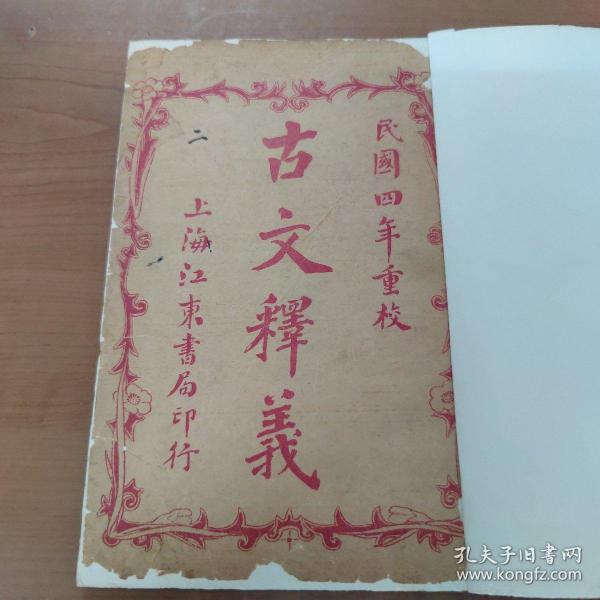 民國四年重校
古文釋義
上海江東書局印行
二
孔夫子旧书网
www.kongfz.com